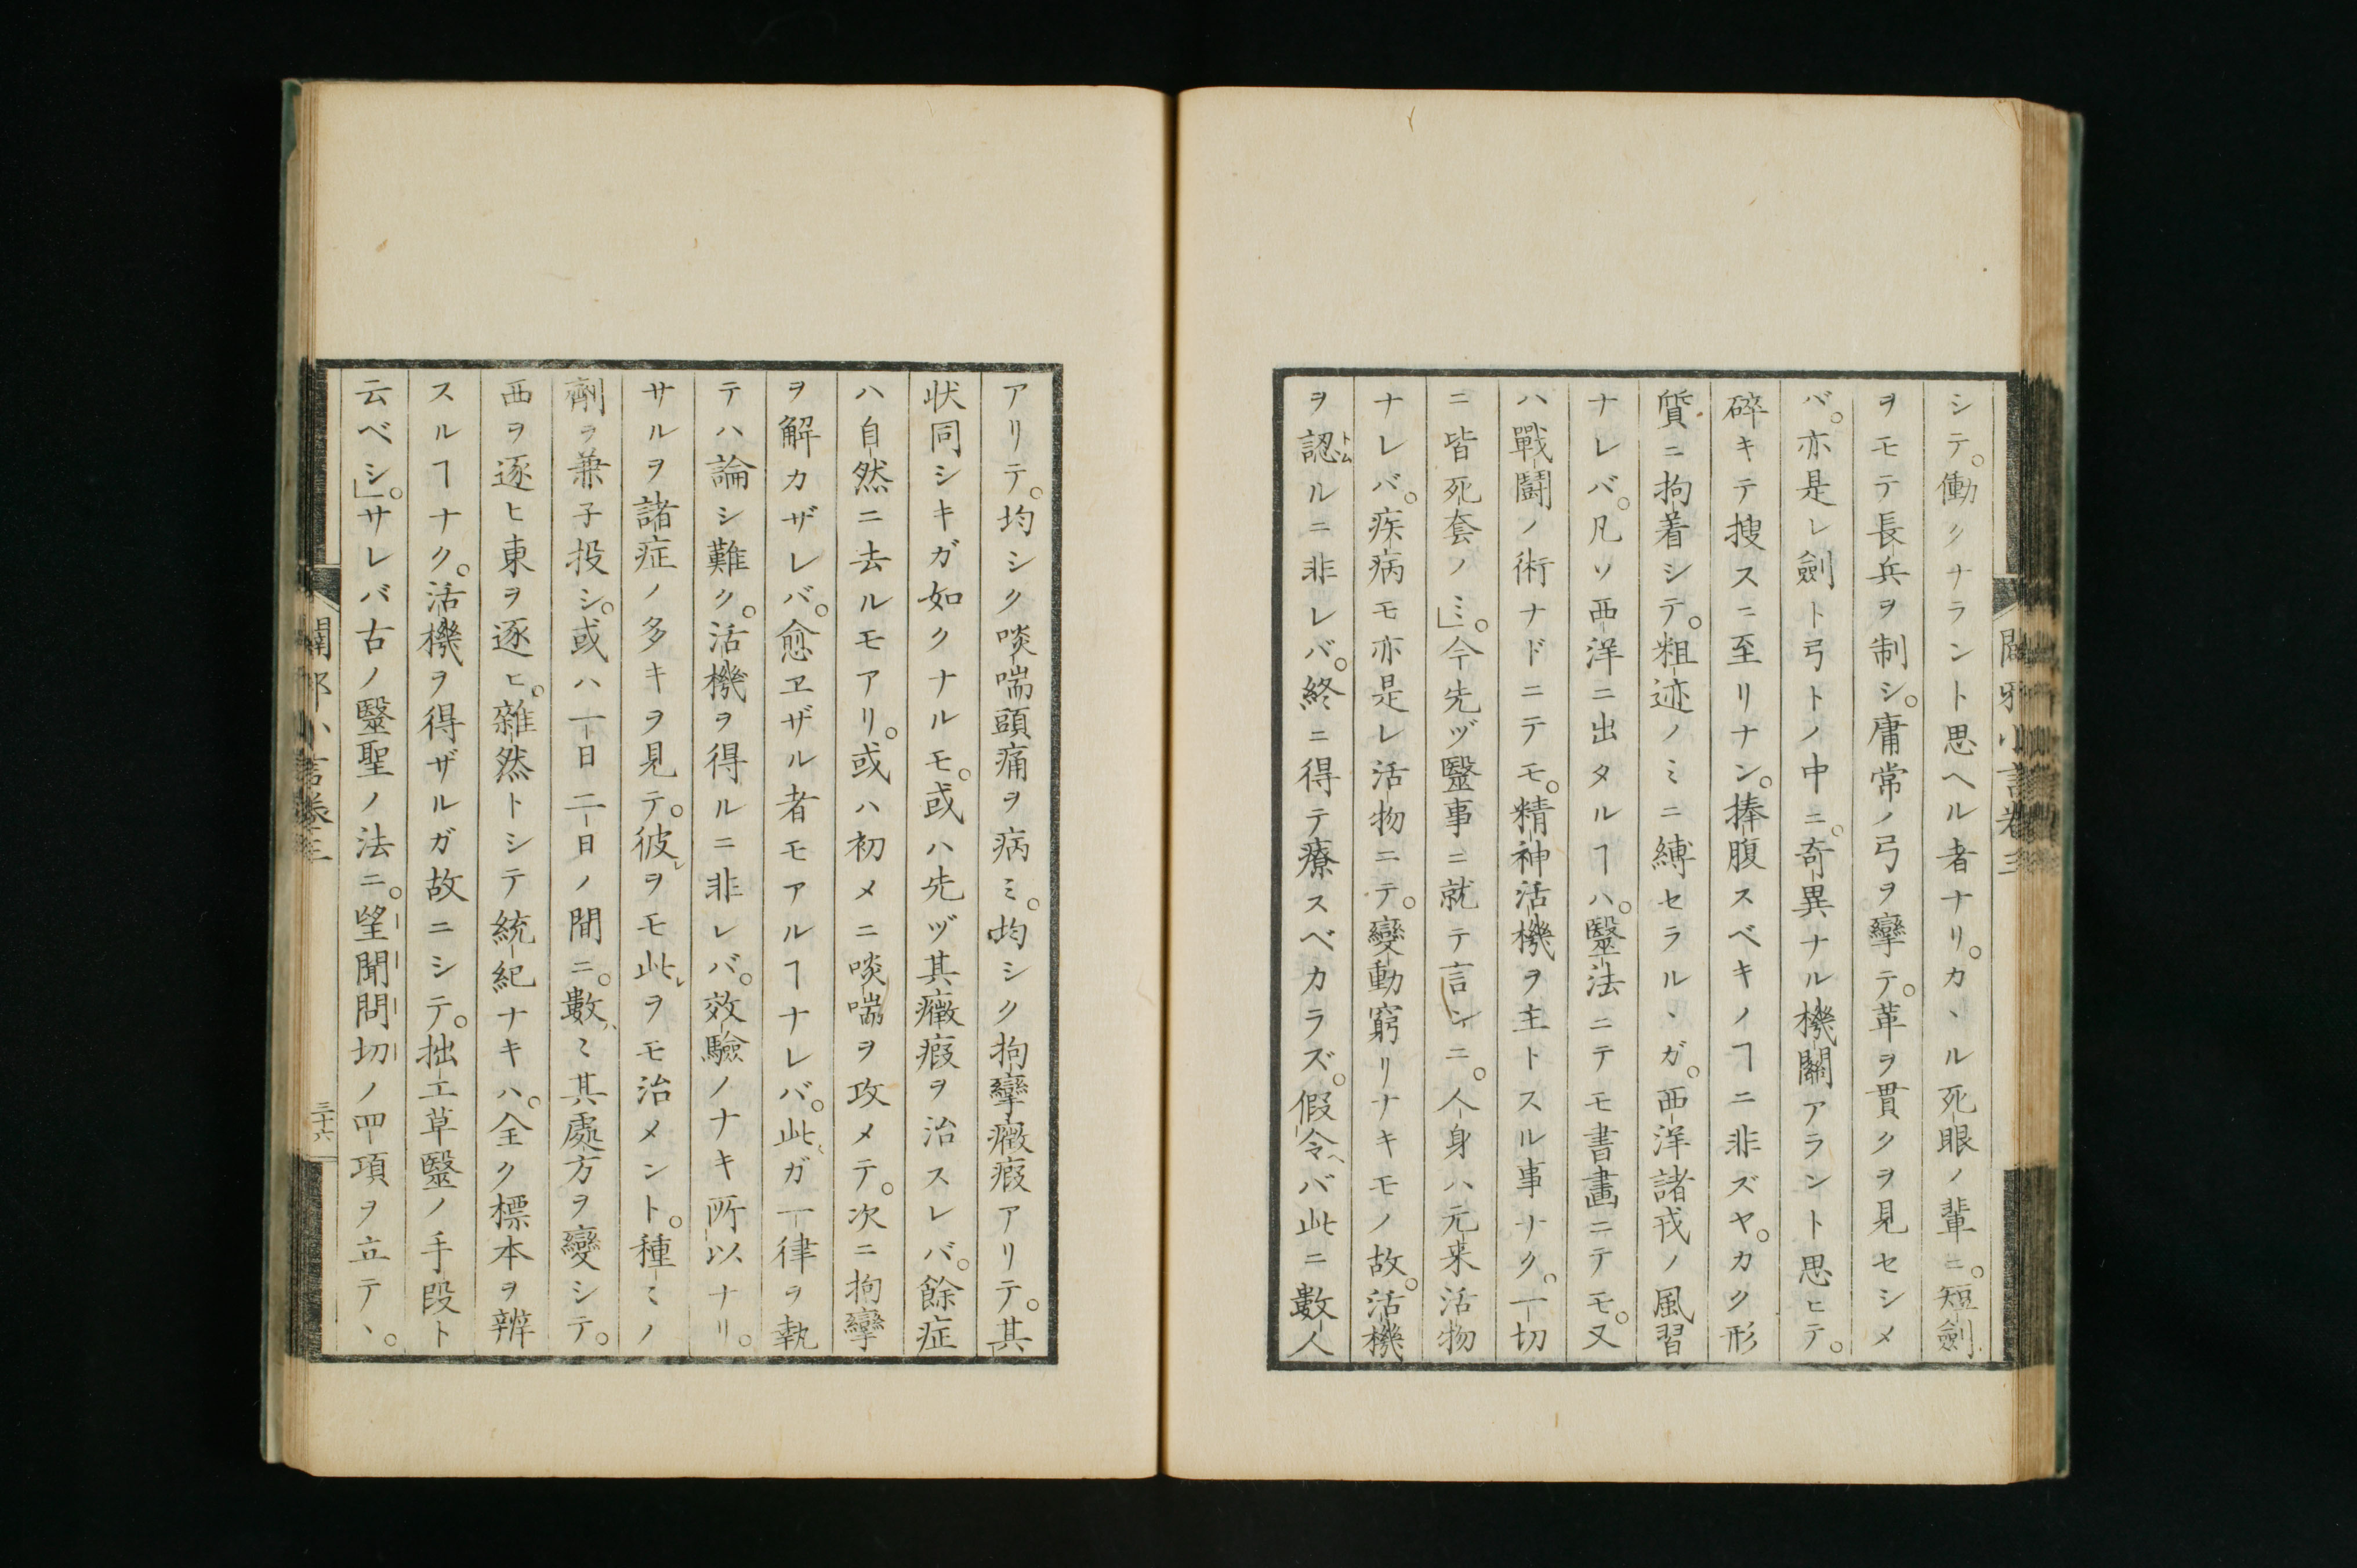 シテ。働クナラント思ヘル者ナリ。カヽル死眼ノ輩ニ。短劍
ヲモテ長兵ヲ制シ。庸常ノ弓ヲ彎テ。革ヲ貫クヲ見セシメ
バ。亦是レ劍ト弓トノ中ニ。奇異ナル機關アラント思ヒテ。
碎キテ搜スニ至リナン。捧腹スベキノヿニ非ズヤ。カク形
質ニ拘着シテ。粗迹ノミニ縛セラルヽガ。西洋諸戎ノ風習
ナレバ。凡ソ西洋ニ出タルヿハ。醫法ニテモ書畫ニテモ。又
ハ戰鬪ノ術ナドニテモ。精神活機ヲ主トスル事ナク。一切
ニ皆死套ノミ」。今先ヅ醫事ニ就テ言ンニ。人身ハ元来活物
ナレバ。疾病モ亦是レ活物ニテ。變動窮リナキモノ故。活機
ヲ認トムルニ非レバ。終ニ得テ療スベカラズ。假令ヘバ此ニ數人
闢邪小言卷三
アリテ。均シク啖喘頭痛ヲ病ミ。均シク拘攣癥瘕アリテ。其
状同シキガ如クナルモ。或ハ先ヅ其癥瘕ヲ治スレバ。餘症
ハ自然ニ去ルモアリ。或ハ初メニ啖喘ヲ攻メテ。次ニ拘攣
ヲ解カザレバ。愈ヱザル者モアルヿナレバ。此ガ一律ヲ執
テハ論シ難ク。活機ヲ得ルニ非レバ。效驗ノナキ所以ナリ。
サルヲ諸症ノ多キヲ見テ。彼レヲモ此レヲモ治メント。種ミノ
劑ヲ兼子投シ。或ハ一日二日ノ間ニ。數〻ミ其處方ヲ變シテ。
西ヲ逐ヒ東ヲ逐ヒ。雜然トシテ統紀ナキハ。全ク標本ヲ辨
スルヿナク。活機ヲ得ザルガ故ニシテ。拙工草醫ノ手段ト
云ベシ」。サレバ古ノ醫聖ノ法ニ。望聞問切ノ四項ヲ立テヽ。
闢邪小言卷三
三十六